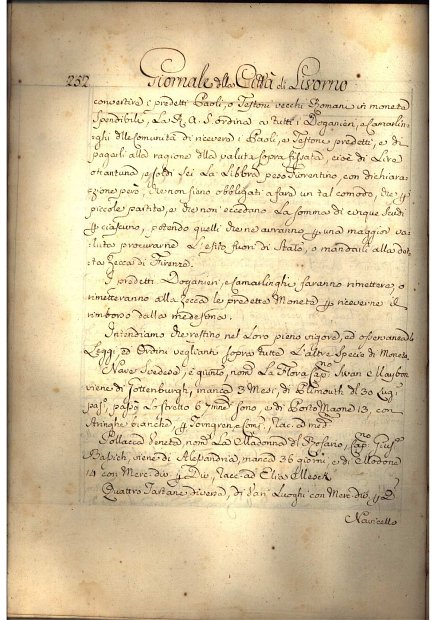 252 Giornale della Città di Livorno
convertire i predetti Paoli, o Testoni vecchi Romani in moneta
Spendibile, La R. A. S. ordina a tutti i Doganieri, e Camarlin-
ghi delle Comunità di ricevere i Paoli, e Testoni predetti, e di
pagarli alla ragione della valuta sopra fissata, cioè di Lire
ottantuna, e soldi sei La Libbra peso Fiorentino, con dichiara-
zione però, che non sieno obbligati a fare un tal comodo, che
piccole partite, e che non eccedano La somma di cinque Scudi
ciascuno, potendo quelli che ne avranno una maggior va-
luta procurarne L'esito fuori di Stato, o mandarli alla det-
ta Zecca di Firenze.
I predetti Doganieri, e Camarlinghi faranno rimettere, o
rimetteranno alla Zecca le predette Monete riceverne il
rimborso dalla medesima.
Intendiamo che restino nel Loro pieno vigore, ed osservanza
Leggi, ed Ordini veglianti sopra tutte L'altre Specie di Monete.
Nave Svedese, è giunto, nom La Flora Cap.no Swan
viene di Gottenburgh, manca 3 Mesi, di Plimouth dl 30 Lug.
pas.o, Lo stretto 6 sono, e di Porto Maone 13, con
Aringhe bianche,
Pollacca Veneta nom La Madonna del Rosario, Cap.no Gius.e
viene di Alessandria, manca 36 giorni, e di Modone
14 con Merc. div. Racc. ad Elia
Quattro Tartane diverse, di vari Luoghi con Merc. div.
Navicello